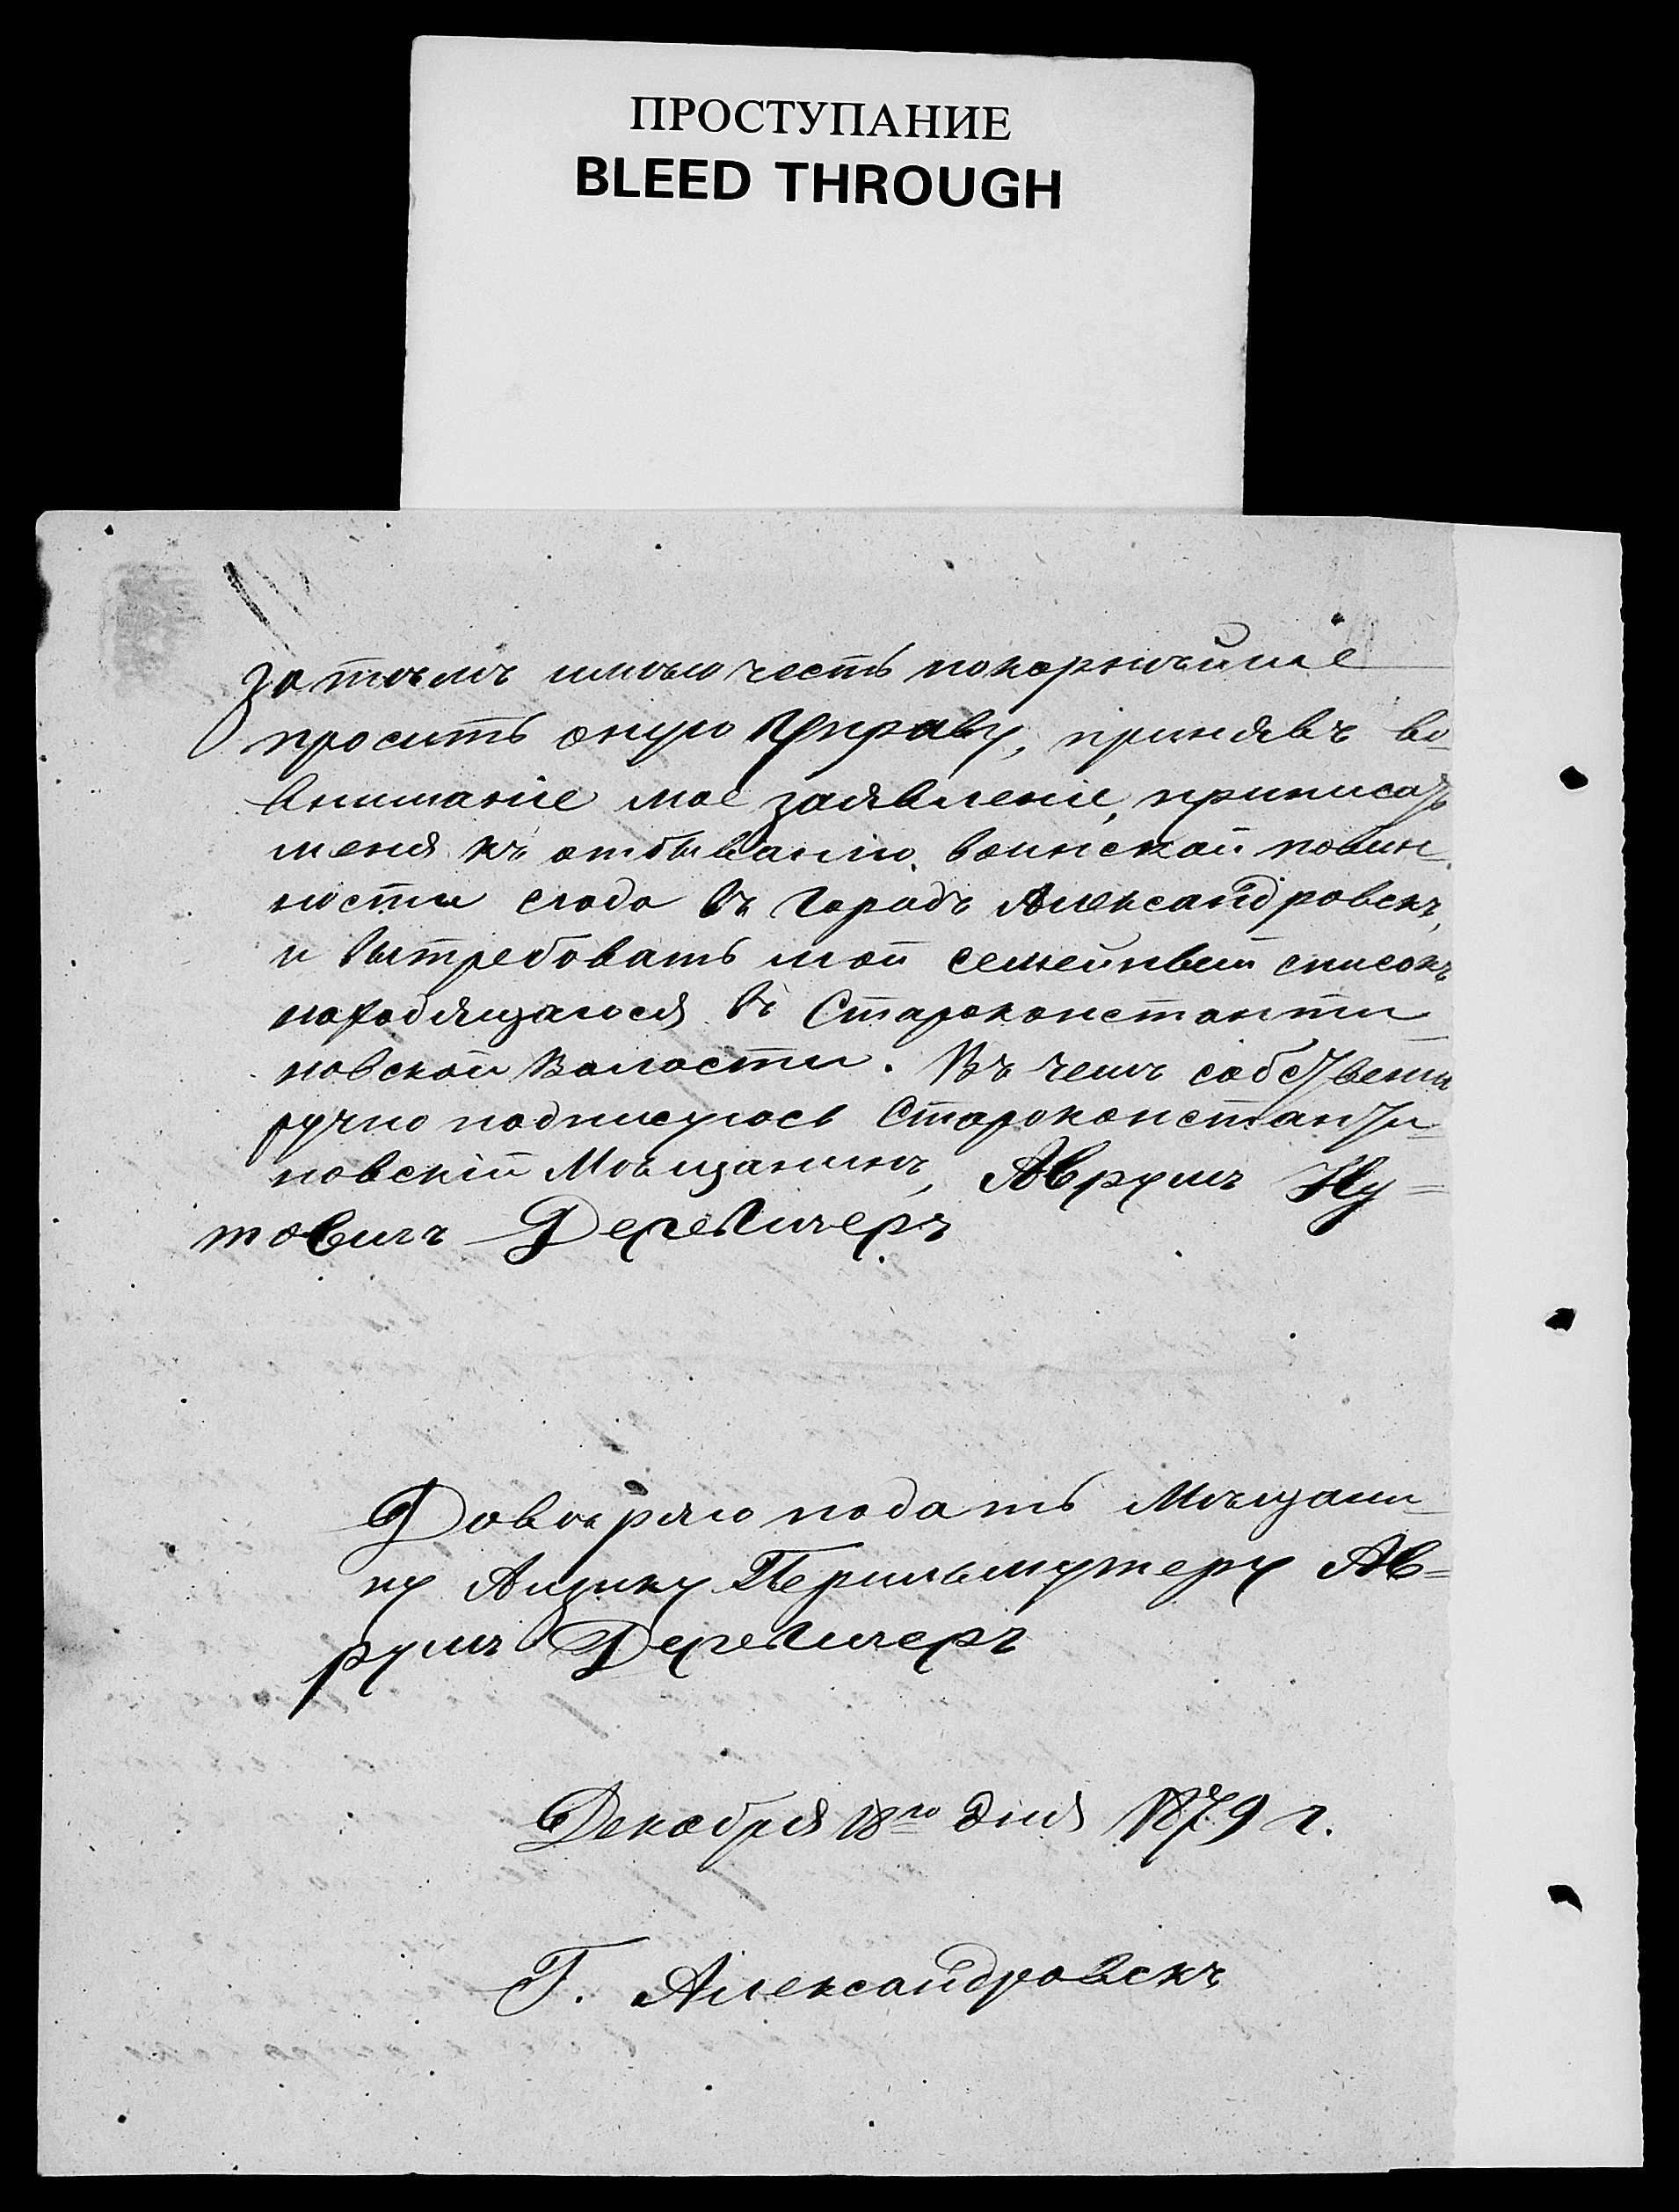 ПРОСТУПАНИЕ
BLEED THROUGH
затѣмъ имѣю честь покорнѣйше
просить оную Управу, принявъ во
вниманіе мое заявленіе, приписать
меня къ отбыванію воинской повин-
ности сюда въ городъ Александровскъ,
и вытребовать мой семейный списокъ
находящагося въ Староконстанти
новской Волости. Въ чемъ собственно
ручно подписуюсь Староконстанти-
новскій Мѣщанинъ, Аврумъ Ну=
товичъ
Довѣряю подать Мѣщани-
ну Айзику Перильмутеру Ав=
румъ
Декабря 18го дня 1879 г.
Г. Александровскъ